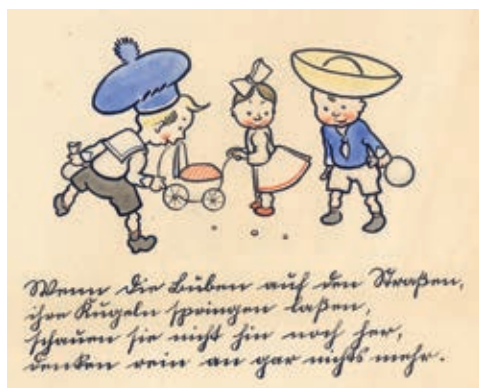 Wenn die Buben auf den Straßen,
ihre Kugeln springen laßen,
schauen sie nicht hin noch her,
denken rein an gar nichts mehr.